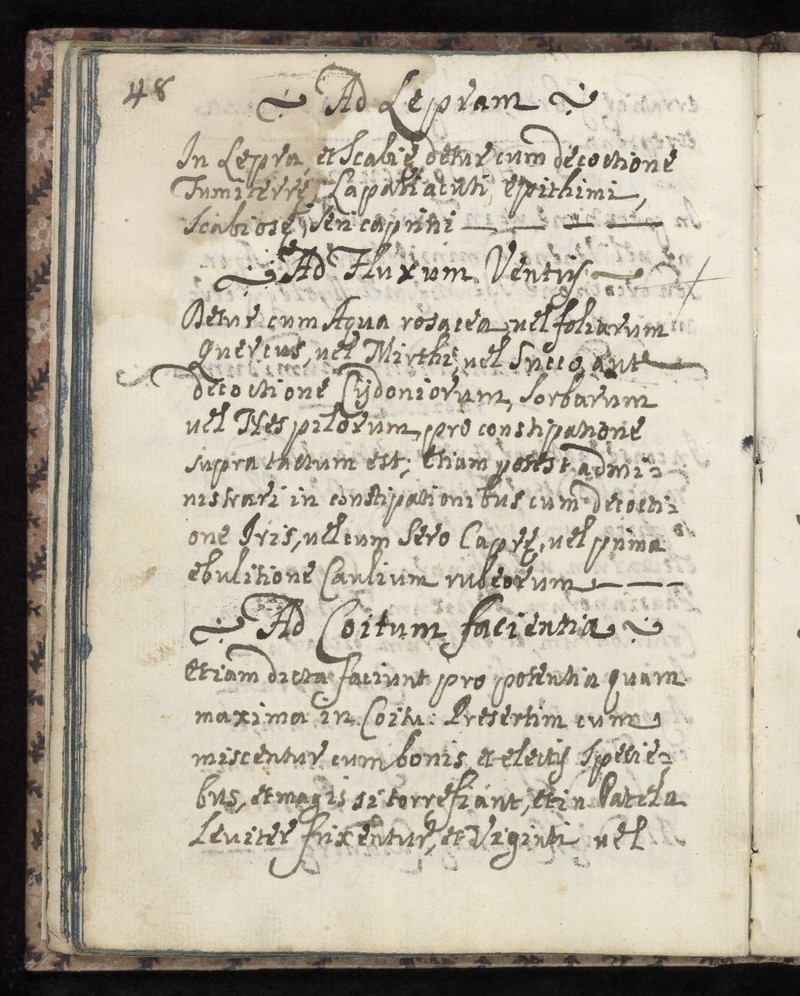 48
Ad Lepram
In Lepra, et Scabie detur cum decoctione
Fumiterrę, Lapatiacuti, epithimi,
Scabiosę, Seri caprini
Ad Fluxum Ventris
Detur cum Aqua rosacea, uel foliarum
Quercus, uel Mirthi, uel Succo, aut
decoctione Cydoniorum, Sorbarum
uel Nespilorum, pro constipatione
supra tactum est; Etiam potest admi:
nistrari in constipationibus cum decocti:
one Iris, uel cum Sero Caprę, uel prima
ebulitione Caulium rubeorum
Ad Coitum facientia
Etiam dicta faciunt pro potentia quam
maxima in Coitu: Presertim cum
miscentur cum bonis, et electis Spetie:
bus, et magis si torrefiant, et in Patela
Leuiter frixentur, et Viginti uel